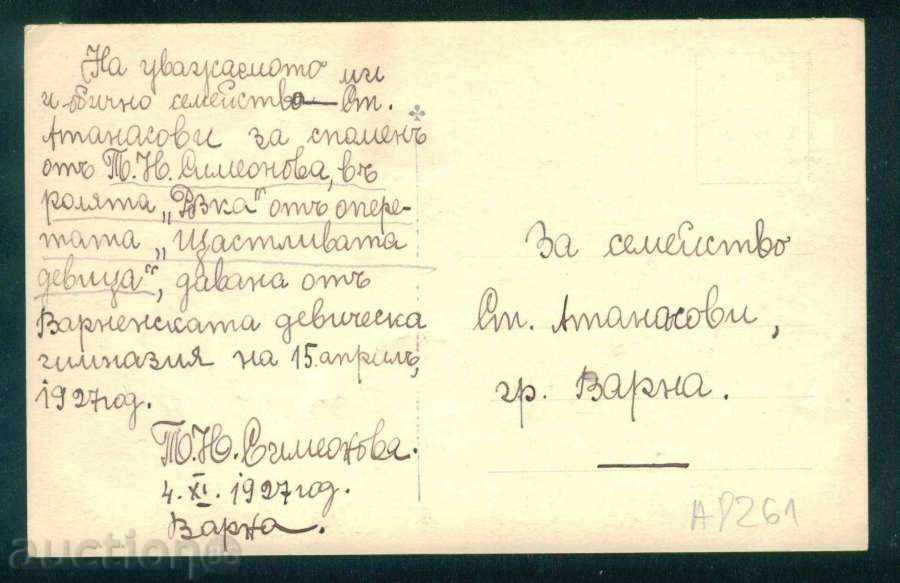 На уважаемото ми
и обично семейство Ст.
Атанасови за споменъ
отъ Т. Н. Симеонова, въ
ролята „Рѫжка“ отъ опере-
тата „Щастливата
девица“, давана отъ
Варненската девическа
гимназия на 15. априлъ,
1927 год.
Т. Н. Симеонова.
4. XI. 1927 год.
Варна.
За семейство
Ст. Атанасови,
гр. Варна.
АР261
auction